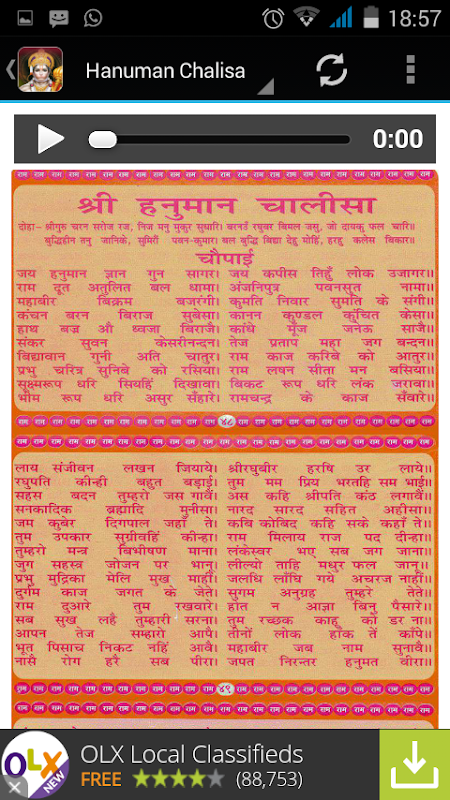 18:57
Hanuman Chalisa
0:00
श्री हनुमान चालीसा
दोहा- श्रीगुरु चरन सरोज रज, निज मनु मुकुर सुधारि। बरनउँ रघुबर बिमल जसु, जो दायकु फल चारि॥
बुद्धिहीन तनु जानिके, सुमिरौं पवन-कुमार। बल बुद्धि बिद्या देहु मोहिं, हरहु कलेस बिकार॥
चौपाई
जय हनुमान ज्ञान गुन सागर। जय कपीस तिहुँ लोक उजागर॥
राम दूत अतुलित बल धामा। अंजनिपुत्र पवनसुत नामा॥
महाबीर बिक्रम बजरंगी। कुमति निवार सुमति के संगी॥
कंचन बरन बिराज सुबेसा। कानन कुण्डल कुंचित केसा॥
हाथ बज्र औ ध्वजा बिराजै। काँधे मूँज जनेऊ साजै॥
संकर सुवन केसरीनन्दन। तेज प्रताप महा जग बन्दन॥
बिद्यावान गुनी अति चातुर। राम काज करिबे को आतुर॥
प्रभु चरित्र सुनिबे को रसिया। राम लषन सीता मन बसिया॥
सूक्ष्मरूप धरि सियहिं दिखावा। बिकट रूप धरि लंक जरावा॥
भीम रूप धरि असुर सँहारे। रामचन्द्र के काज सँवारे॥
४८
लाय संजीवन लखन जियाये। श्रीरघुबीर हरषि उर लाये॥
रघुपति कीन्ही बहुत बड़ाई। तुम मम प्रिय भरतहि सम भाई॥
सहस बदन तुम्हरो जस गावैं। अस कहि श्रीपति कंठ लगावैं॥
सनकादिक ब्रह्मादि मुनीसा। नारद सारद सहित अहीसा॥
जम कुबेर दिगपाल जहाँ ते। कबि कोबिद कहि सके कहाँ ते॥
तुम उपकार सुग्रीवहिं कीन्हा। राम मिलाय राज पद दीन्हा॥
तुम्हरो मन्त्र बिभीषण माना। लंकेस्वर भए सब जग जाना॥
जुग सहस्त्र जोजन पर भानू। लील्यो ताहि मधुर फल जानू॥
प्रभु मुद्रिका मेलि मुख माहीं। जलधि लाँघि गये अचरज नाहीं॥
दुर्गम काज जगत के जेते। सुगम अनुग्रह तुम्हरे तेते॥
राम दुआरे तुम रखवारे। होत न आज्ञा बिनु पैसारे॥
सब सुख लहै तुम्हारी सरना। तुम रच्छक काहू को डर ना॥
आपन तेज सम्हारो आपै। तीनों लोक हाँक तें काँपै॥
भूत पिसाच निकट नहिं आवै। महाबीर जब नाम सुनावै॥
नासै रोग हरै सब पीरा। जपत निरन्तर हनुमत बीरा॥
४९
OLX NEW
OLX Local Classifieds
FREE (88,753)